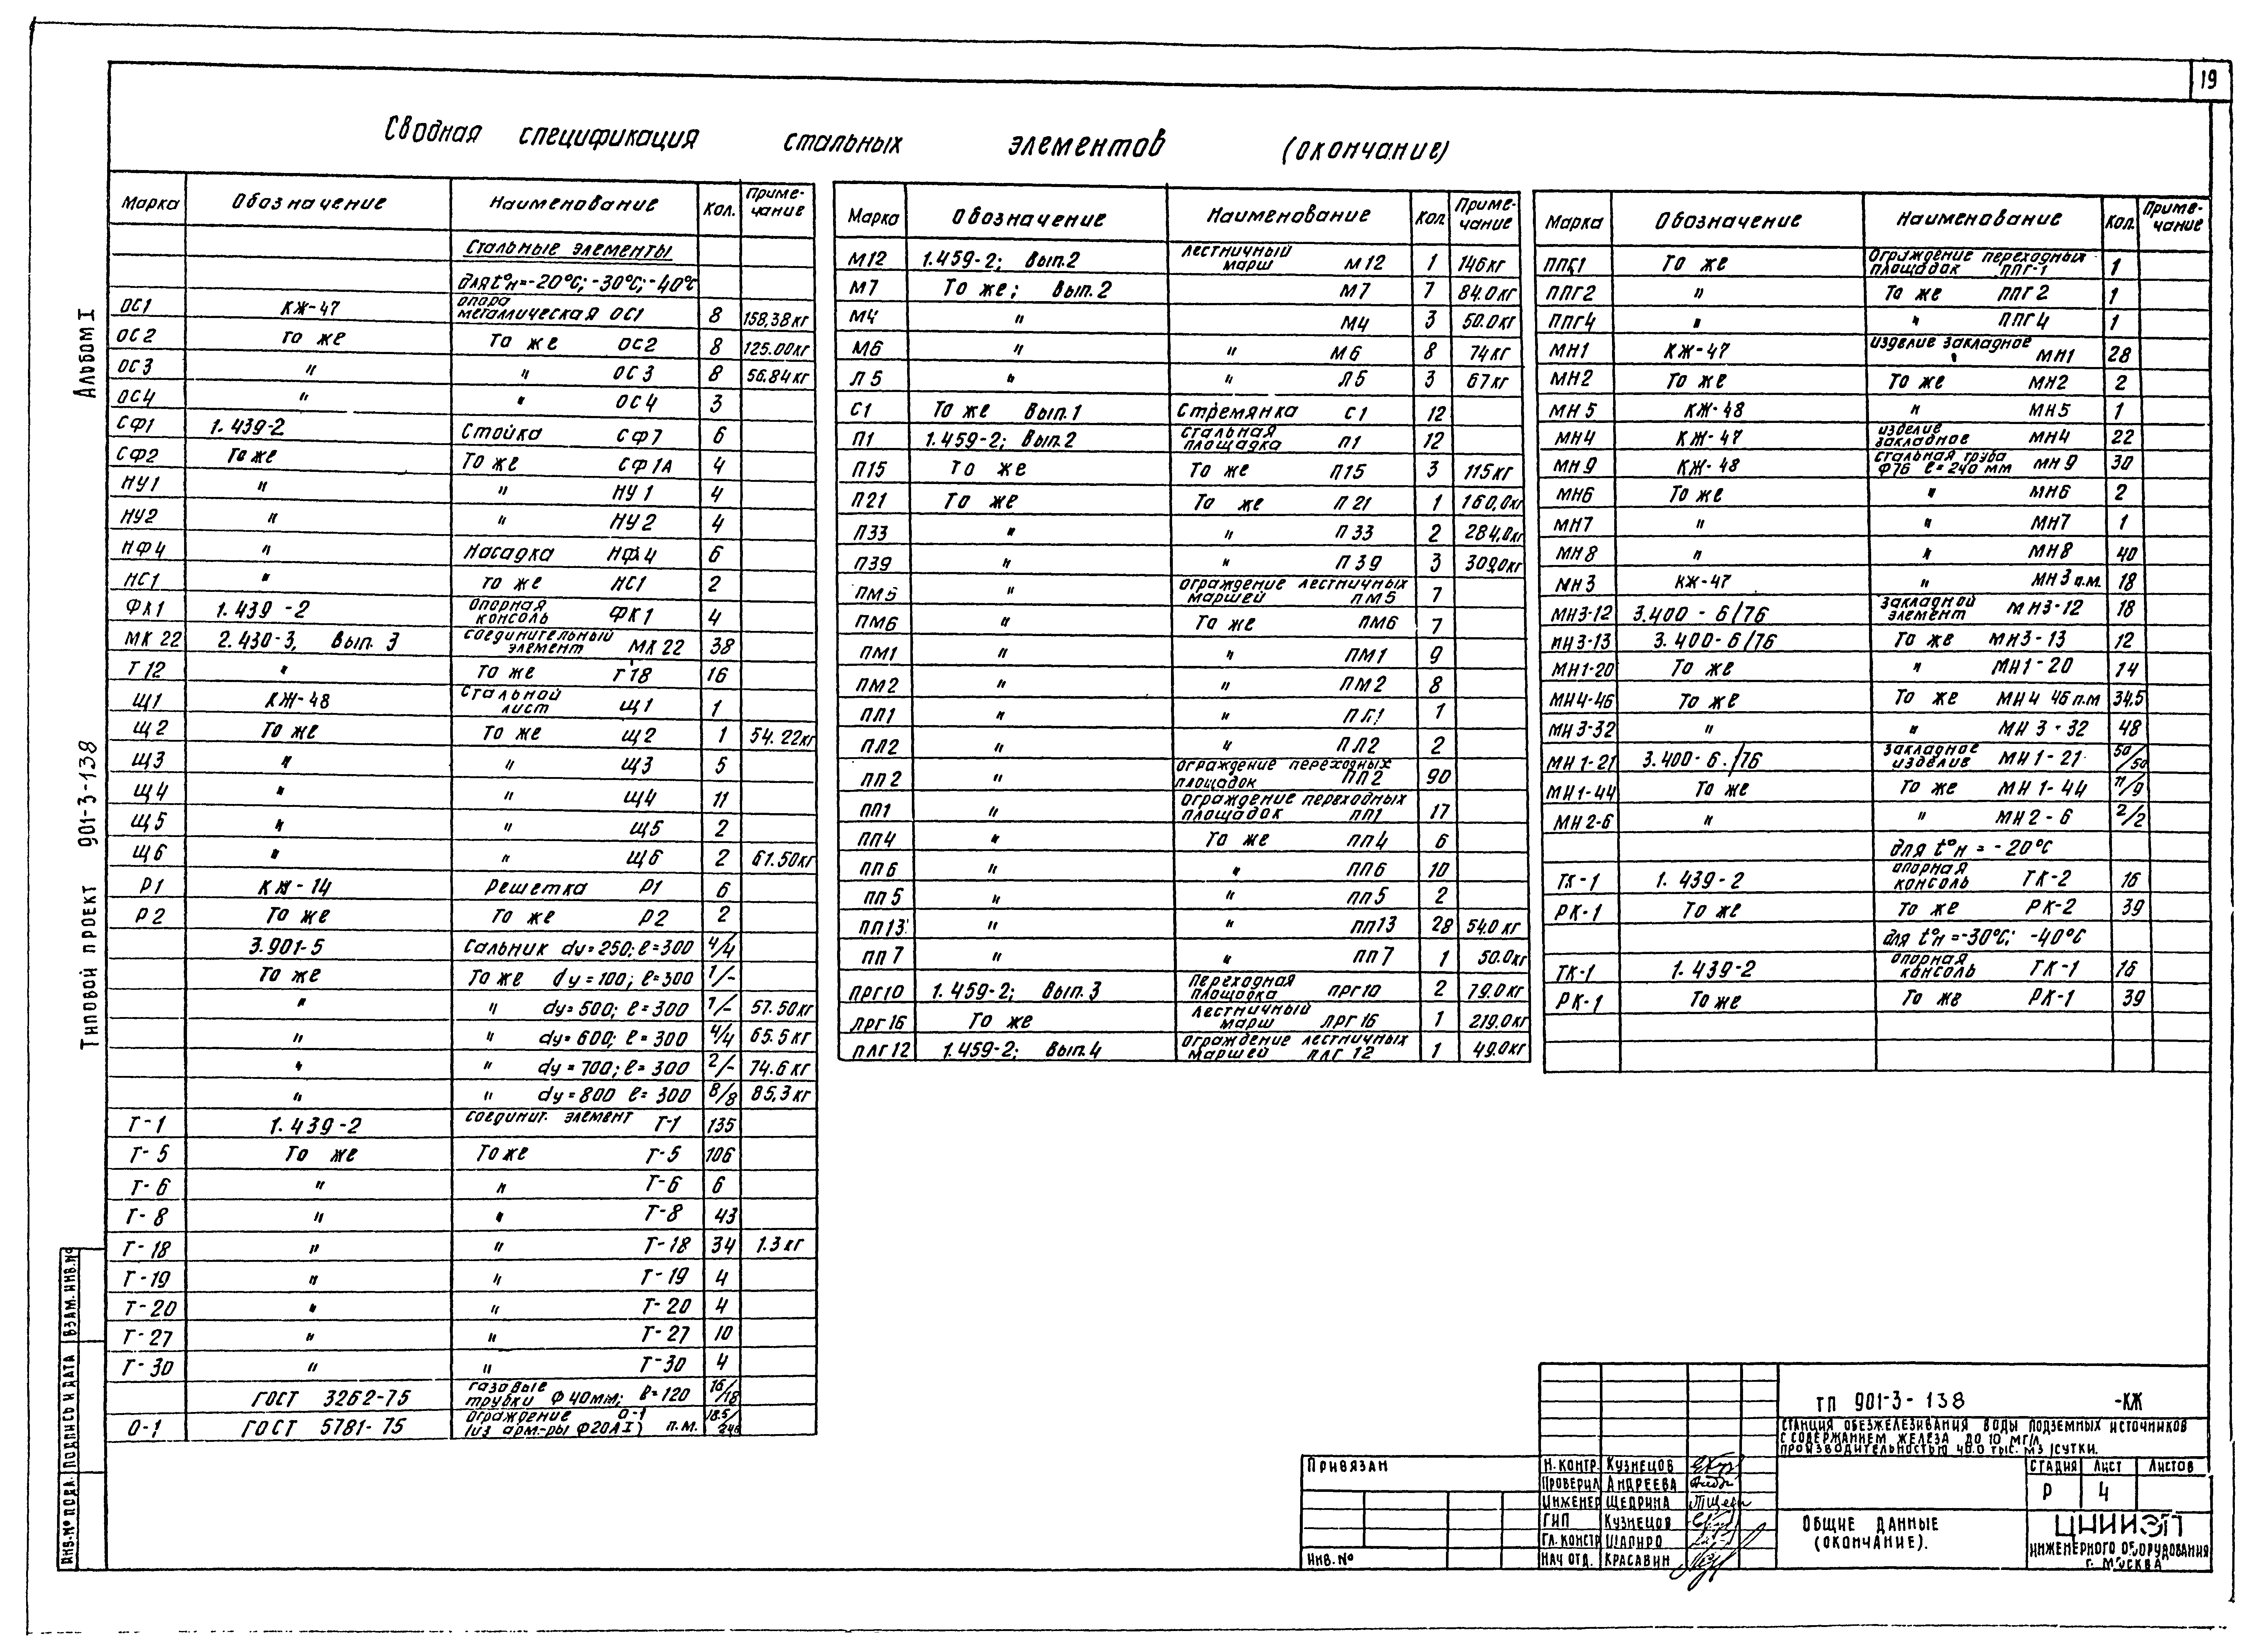 19
Сводная спецификация стальных элементов (окончание)
Альбом I
Типовой проект 901-3-138
Марка Обозначение Наименование Кол. Приме-чание
Стальные элементы
для t°н=-20°С; -30°С; -40°С
ОС1 КЖ-47 опора металлическая ОС1 8 158,38кг
ОС2 То же То же ОС2 8 125.00кг
ОС3 " " ОС3 8 56.84кг
ОС4 " " ОС4 3
СФ1 1.439-2 Стойка СФ7 6
СФ2 То же То же СФ1А 4
НУ1 " " НУ1 4
НУ2 " " НУ2 4
НФ4 " Насадка НФ4 6
НС1 " то же НС1 2
ФК1 1.439-2 опорная консоль ФК1 4
МК22 2.430-3, Вып. 3 соединительный элемент МК22 38
Т12 " То же Т18 16
Щ1 КЖ-48 Стальной лист Щ1 1
Щ2 То же То же Щ2 1 54.22кг
Щ3 " " Щ3 5
Щ4 " " Щ4 11
Щ5 " " Щ5 2
Щ6 " " Щ6 2 61.50кг
Р1 КЖ-14 Решетка Р1 6
Р2 То же То же Р2 2
3.901-5 Сальник dу=250; ℓ=300 4/4
То же То же dу=100; ℓ=300 1/-
" " dу=500; ℓ=300 1/- 57.50кг
" " dу=600; ℓ=300 4/4 65.5кг
" " dу=700; ℓ=300 2/- 74.6кг
" " dу=800 ℓ=300 8/8 85,3кг
Т-1 1.439-2 соединит. элемент Т-1 135
Т-5 То же То же Т-5 106
Т-6 " " Т-6 6
Т-8 " " Т-8 43
Т-18 " " Т-18 34 1.3кг
Т-19 " " Т-19 4
Т-20 " " Т-20 4
Т-27 " " Т-27 10
Т-30 " " Т-30 4
ГОСТ 3262-75 газовые трубки Ф40мм; ℓ=120 16/18
О-1 ГОСТ 5781-75 ограждение О-1 (из арм-ры Ф20АI) п.м. 18.5/
Марка Обозначение Наименование Кол. Приме-чание
М12 1.459-2; Вып.2 лестничный марш М12 1 146кг
М7 То же; Вып.2 М7 7 84.0кг
М4 " М4 3 50.0кг
М6 " " М6 8 74кг
Л5 " " Л5 3 67кг
С1 То же Вып.1 Стремянка С1 12
П1 1.459-2; Вып.2 стальная площадка П1 12
П15 То же То же П15 3 115кг
П21 То же То же П21 1 160,0кг
П33 " " П33 2 284,0кг
П39 " " П39 3 309,0кг
ПМ5 " ограждение лестничных маршей ПМ5 7
ПМ6 " То же ПМ6 7
ПМ1 " " ПМ1 9
ПМ2 " " ПМ2 8
ПЛ1 " " ПЛ1 1
ПЛ2 " " ПЛ2 2
ПП2 " ограждение переходных площадок ПП2 90
ПП1 " ограждение переходных площадок ПП1 17
ПП4 " То же ПП4 6
ПП6 " " ПП6 10
ПП5 " " ПП5 2
ПП13 " " ПП13 28 54.0кг
ПП7 " " ПП7 1 50.0кг
ПРГ10 1.459-2; Вып.3 Переходная площадка ПРГ10 2 79.0кг
ЛРГ16 То же лестничный марш ЛРГ16 1 219.0кг
ПЛГ12 1.459-2; Вып.4 ограждение лестничных маршей ПЛГ12 1 49.0кг
Марка Обозначение Наименование Кол. Приме-чание
ППГ1 То же Ограждение переходных площадок ППГ-1 1
ППГ2 " То же ППГ2 1
ППГ4 " " ППГ4 1
МН1 КЖ-47 изделие закладное МН1 28
МН2 То же То же МН2 2
МН5 КЖ-48 " МН5 1
МН4 КЖ-47 изделие закладное МН4 22
МН9 КЖ-48 стальная труба Ф76 ℓ=240мм МН9 30
МН6 То же " МН6 2
МН7 " " МН7 1
МН8 " " МН8 40
МН3 КЖ-47 " МН3 п.м. 18
МН3-12 3.400-6/76 закладной элемент МН3-12 18
МН3-13 3.400-6/76 То же МН3-13 12
МН1-20 То же " МН1-20 14
МН4-46 То же То же МН4 46 п.м 34,5
МН3-32 " " МН3-32 48
МН1-21 3.400-6./76 закладное изделие МН1-21 50/50
МН1-44 То же То же МН1-44 11/9
МН2-6 " " МН2-6 2/2
для t°н = -20°С
ТК-1 1.439-2 опорная консоль ТК-2 16
РК-1 То же То же РК-2 39
для t°н=-30°С; -40°С
ТК-1 1.439-2 опорная консоль ТК-1 16
РК-1 То же То же РК-1 39
Привязан
Инв.№
Н.контр. Кузнецов
Проверил Андреева
Инженер Щедрина
ГИП Кузнецов
Гл.констр Шапиро
Нач отд. Красавин
ТП 901-3-138 -КЖ
Станция обезжелезивания воды подземных источников
с содержанием железа до 10 мг/л
производительностью 40.0 тыс. м3/сутки.
Стадия Лист Листов
Р 4
Общие данные
(окончание).
ЦНИИЭП
инженерного оборудования
г. Москва
Инв.№ подл. Подпись и дата Взам.инв.№